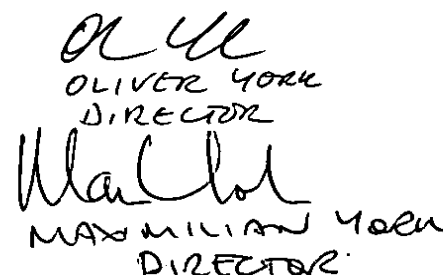 OLIVER YORK
DIRECTOR
MAXIMILIAN YORK
DIRECTOR